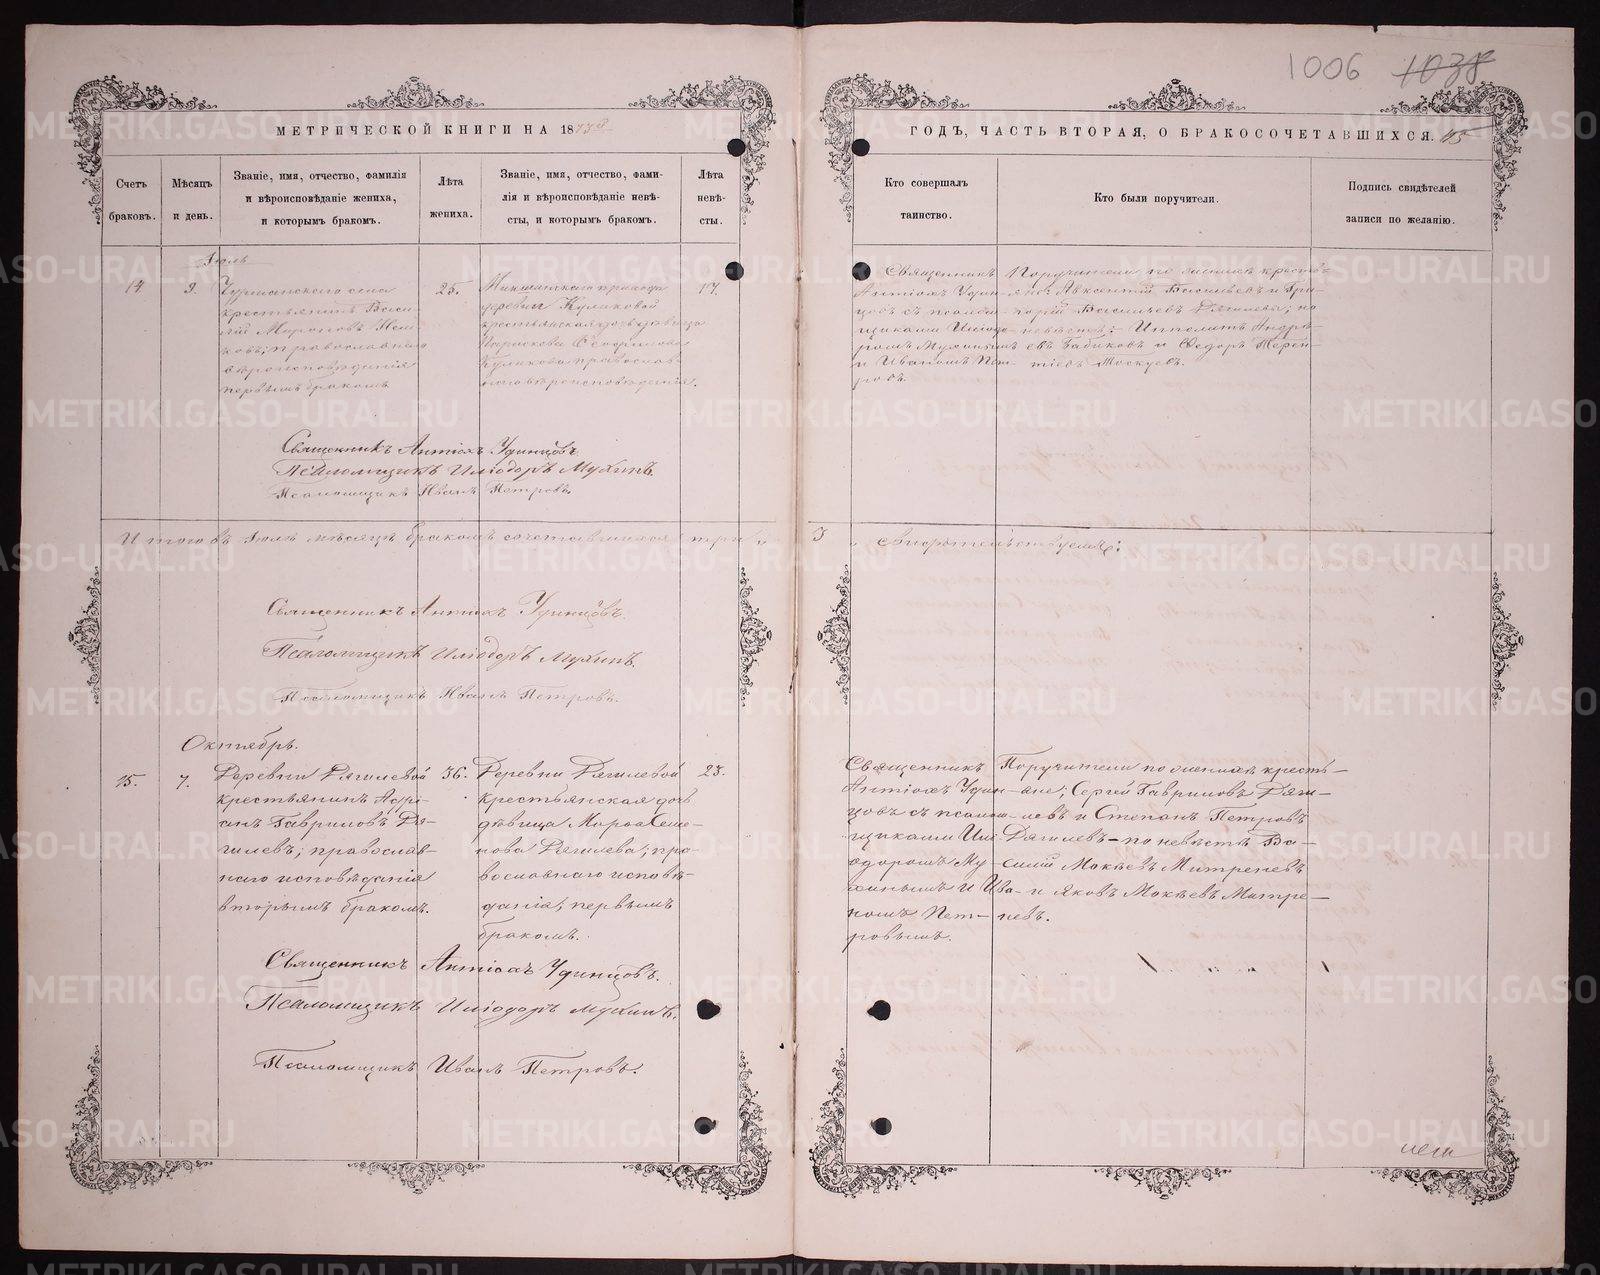 1006 1038
МЕТРИЧЕСКОЙ КНИГИ НА 18
Счетъ браковъ.
Мѣсяцъ и день.
Званіе, имя, отчество, фамилія
и вѣроисповѣданіе жениха,
и которымъ бракомъ.
Лѣта жениха.
Званіе, имя, отчество, фами-
лія и вѣроисповѣданіе невѣ-
сты, и которымъ бракомъ.
Лѣта
невѣ-
сты.
ГОДЪ, ЧАСТЬ ВТОРАЯ, О БРАКОСОЧЕТАВШИХСЯ.
Кто совершалъ
таинство.
Кто были поручители.
Подпись свидѣтелей
записи по желанію.
Іюль
14
крестьянинъ Васи-
лій Мироновъ
православнаго
вѣроисповѣданія
первымъ бракомъ
25.
прихода
деревни Куликовой
крестьянская дочь дѣвица
Параскева
Куликова православ-
наго вѣроисповѣданія.
17.
Священникъ
Антіохъ Удин-
цовъ съ псалом-
щиками Иліодо-
ромъ Мухинымъ
и Иваномъ Пет-
Поручители по женихѣ кресть-
яне: Авксентій Васильевъ и Гри-
горій Васильевъ по
невѣстѣ: Ипполитъ Андре-
евъ Бабиковъ и Ѳедоръ Терен-
тіевъ
Священникъ Антіохъ Удинцовъ.
Псаломщикъ Иліодоръ Мухинъ.
Псаломщикъ Иванъ Петровъ.
Итого въ Іюлѣ мѣсяцѣ бракомъ сочетавшихся три „ 3 „ свидѣтельствуемъ:
Священникъ Антіохъ Удинцовъ.
Псаломщикъ Иліодоръ Мухинъ.
Псаломщикъ Иванъ Петровъ.
Октябрь.
15.
7.
Деревни Дягилевой
крестьянинъ Адрі-
анъ Гавриловъ Дя-
гилевъ; православ-
наго исповѣданія
вторымъ бракомъ.
36.
Деревни Дягилевой
крестьянская дочь
дѣвица Марѳа Семе-
нова Дягилева; пра-
вославнаго исповѣ-
данія, первымъ
бракомъ.
23.
Священникъ
Антіохъ Удин-
цовъ съ псалом-
щиками Илі-
одоромъ Му-
хинымъ и Ива-
номъ Пет-
ровымъ.
Поручители по женихѣ кресть-
яне; Сергѣй Гавриловъ Дяги-
левъ и Степанъ Петровъ
Дягилевъ – по невѣстѣ Ва-
силій Мокѣевъ Митреневъ
и Яковъ Мокѣевъ Митре-
невъ.
Священникъ Антіохъ Удинцовъ.
Псаломщикъ Иліодоръ Мухинъ.
Псаломщикъ Иванъ Петровъ.
METRIKI.GASO-URAL.RU